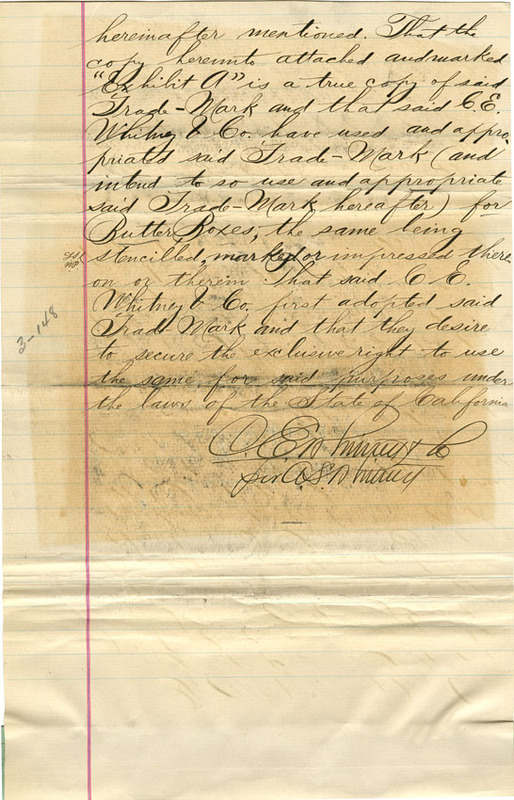 hereinafter mentioned. That the
copy hereunto attached and marked
"Exhibit A" is a true copy of said
Trade-Mark and that said C. E.
Whitney & Co. have used and appro-
priated said Trade-Mark (and
intend to so use and appropriate
said Trade-Mark hereafter) for
Butter Boxes, the same being
stencilled, marked or impressed there-
on or therein. That said C. E.
Whitney & Co. first adopted said
Trade-Mark and that they desire
to secure the exclusive right to use
the same for said purposes under
the laws of the State of California
C. E. Whitney & Co
per A S Whitney
3-148